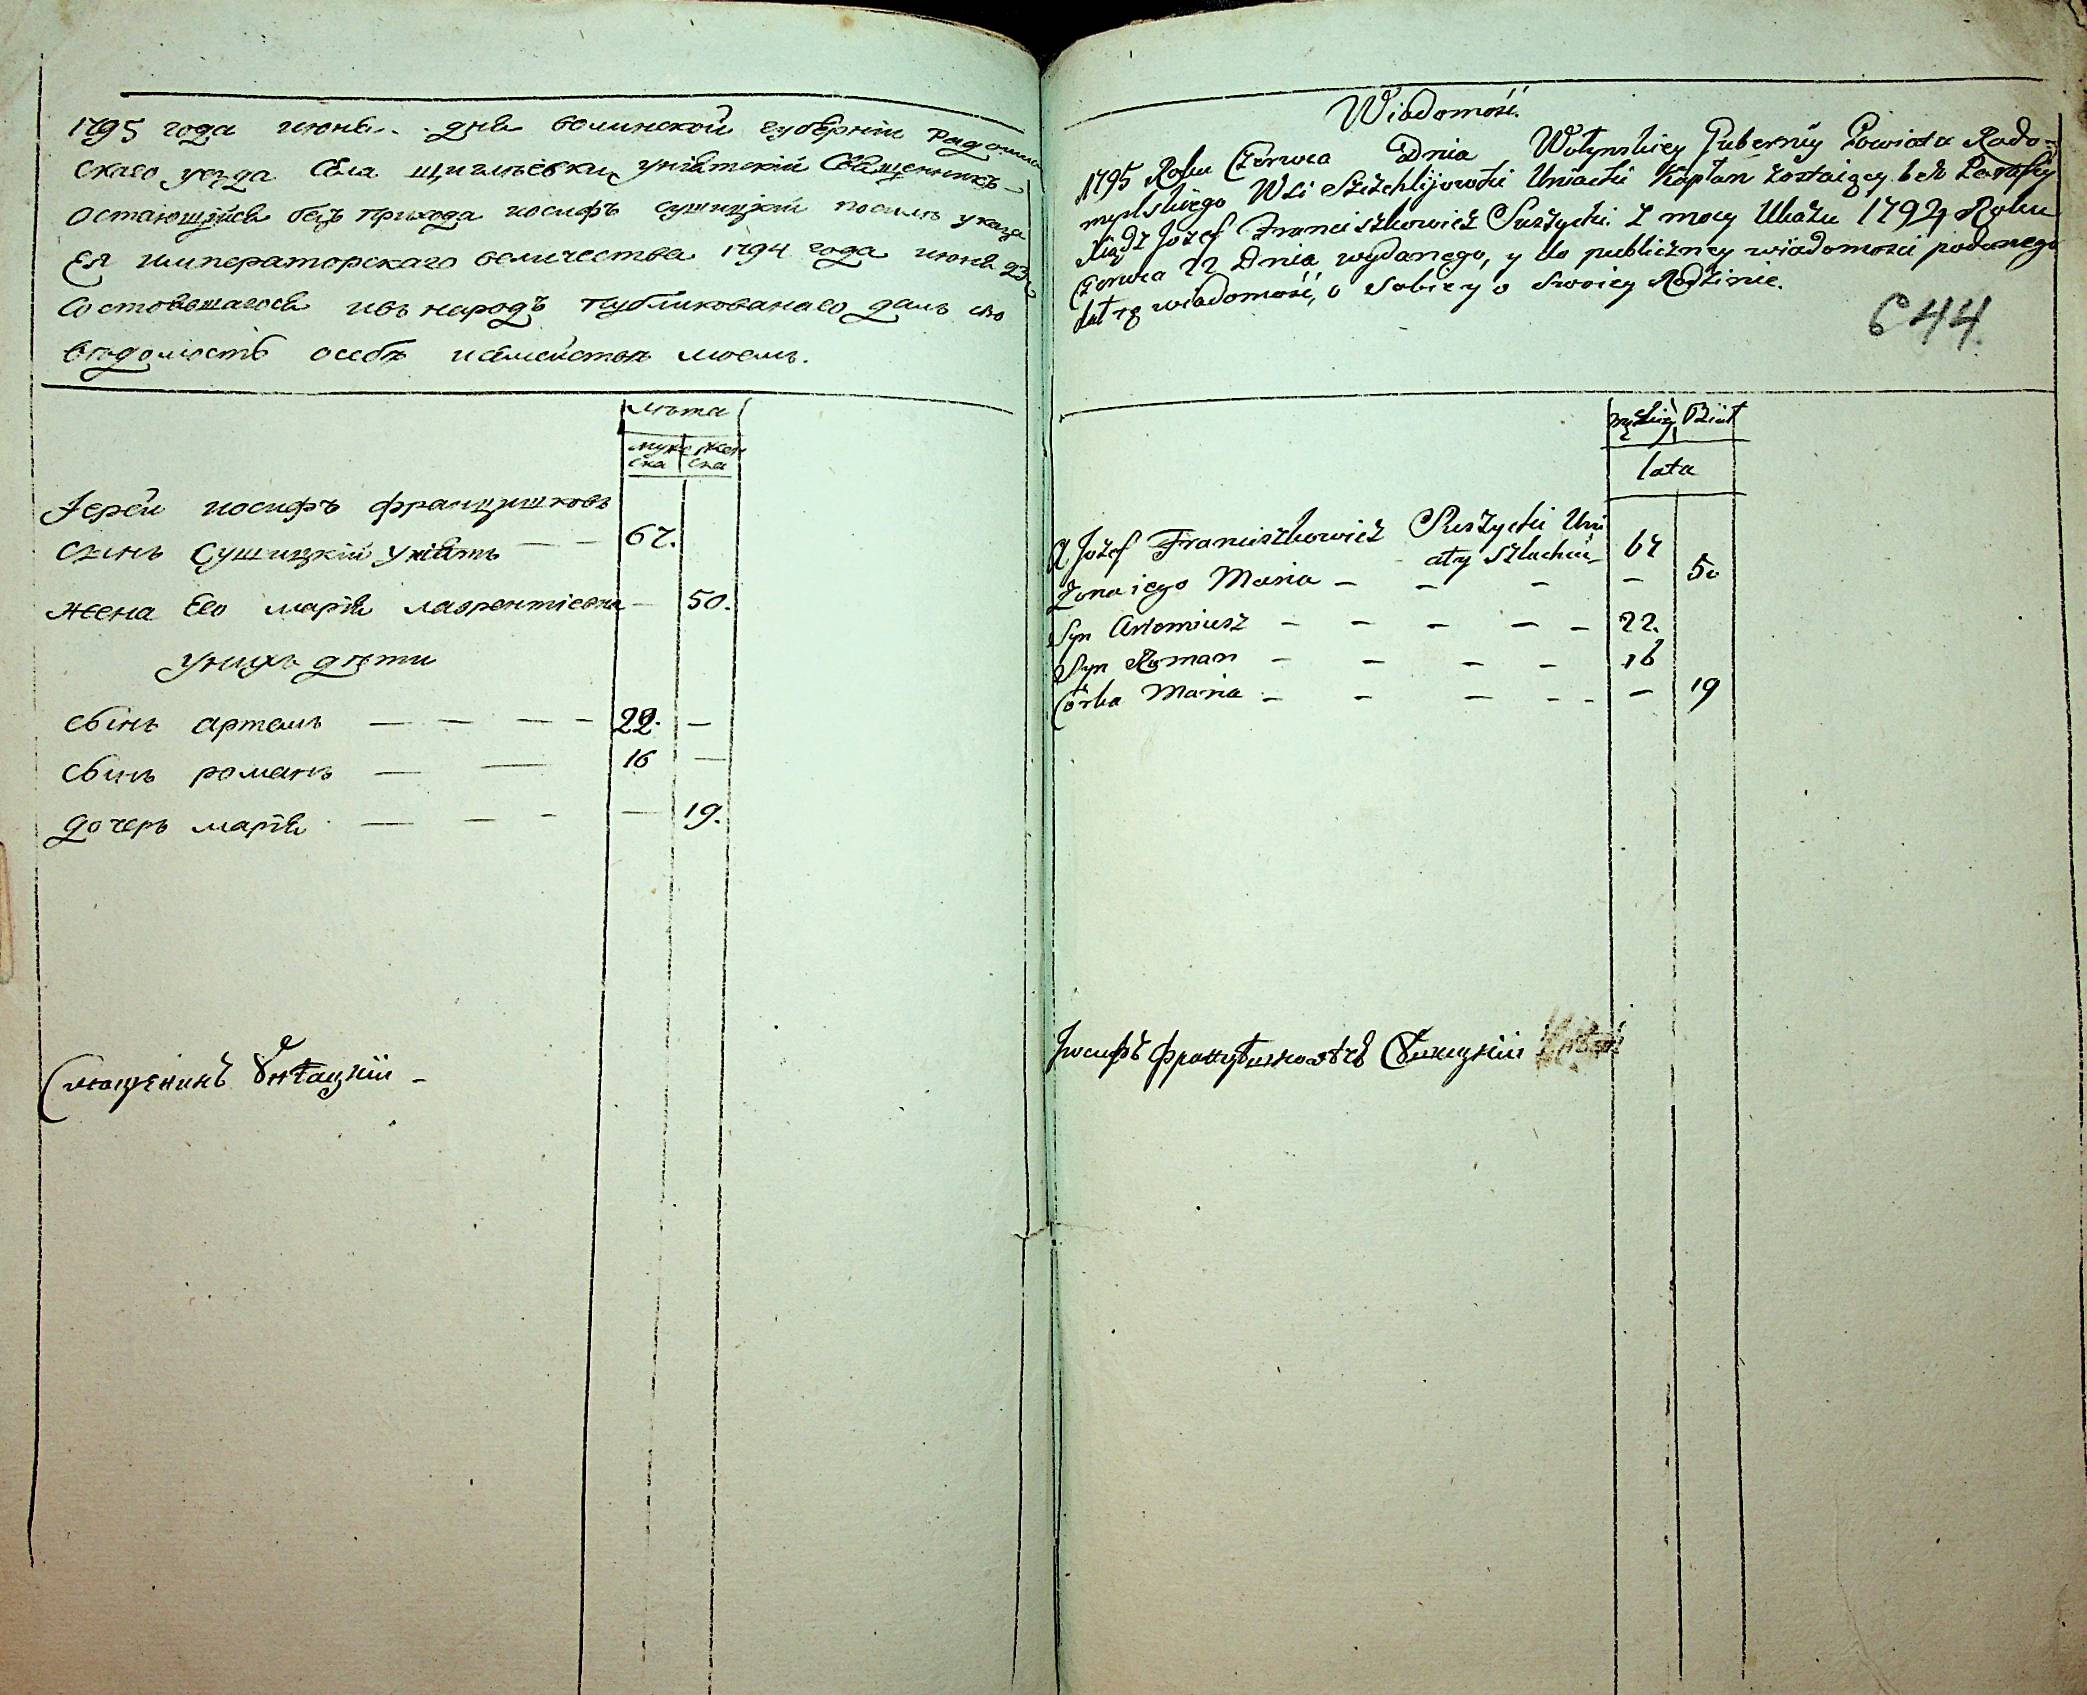 1795 года июня.. дня волинской губерніи Радомы
скаго уезда села щигльевки уніятскій Священникъ
остающійся безъ прихода иосифъ сушицкій посилъ указа
Ея императорскаго величества 1794 года июня
состоявшагося ивъ народъ публикованаго далъ сію
ведомость осебъ исемействъ моемъ.
лъта
мужеска женска
Іерей иосифъ францишковъ
синъ сушицкій уніятъ — — 67.
жена Его марія лаврентіевна — 50.
унихъ дъти
сынъ артемъ — — — — 22. —
сынъ романъ — — 16 —
дочеръ марія — — — — 19.
Свящєникъ Унѣацкій -
Wiadomość.
1795 Roku Czerwca Dnia Wołynskiey Guberniy Powiatu Rado-
myslskiego Wsi Uniacki Kapłan zostaiący bez Parafiy
Xiądz Jozef Franciszkowicz Suszycki z mocy Ukazu 1794 Roku
Czerwca 22 Dnia wydanego, y do publiczney wiadomości podanego
dał tę wiadomość, o Sobie y o Swoiey Rodzinie.
644.
męskiey Biał
lata
X Jozef Franciszkowicz Suszycki Uni
aty Szlachcic 67
Zona iego Maria — — — — 50
Syn Artemiusz — — — — — 22.
Syn Roman — — — — 16
Córka Maria — — — - - — 19
Іосифъ Францѣшковѣчъ Сушицкій